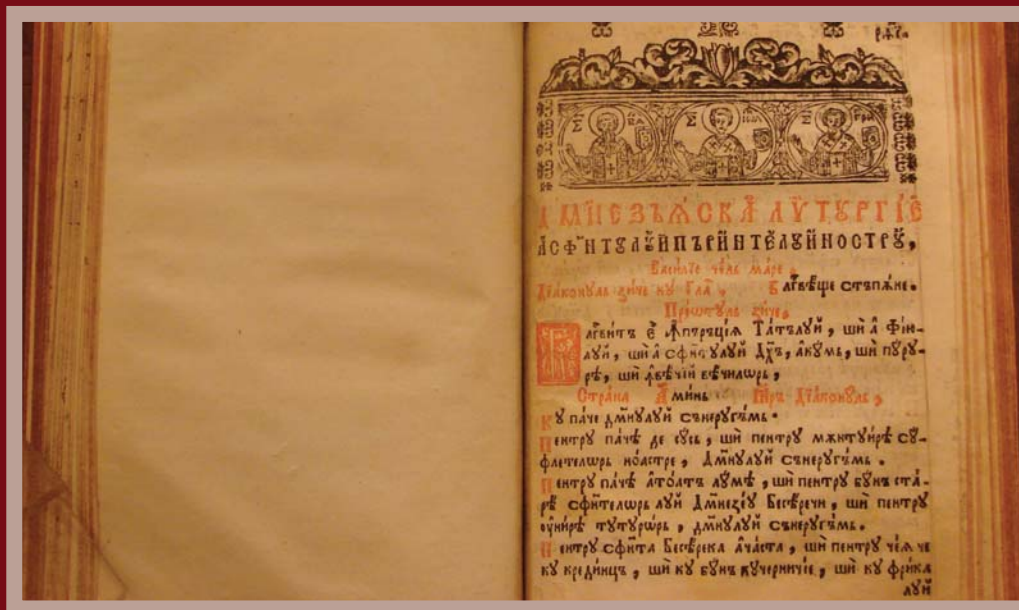 ДМ҃НЕЗѢѦСКА̀ ЛѴТꙊРГІ́Е
АСФꙞ́НТꙊЛꙊЙ ПЪРИ́НТЕЛꙊЙ НО́СТРꙊ,
Васи́лїе че́ль ма́ре,
Дїа́конꙋль зи́че кꙋ Гла҃, Бл҃гвѣ́ще стъпѫ́не.
Прео́тꙋль зи́че,
Бл҃гвитъ є҆ Ꙟ҆пъръці́ѧ Та́тълꙋй, шѝ а̀ Фїю-
лꙋй, шѝ а̀ сфн҃тꙋлꙋй Дх҃ъ, акꙋ́мь, шѝ пꙋ́рꙋ-
рѣ, шѝ ꙟ҆вѣ́чїй вѣ́чилѡрь,
Стра́на А҆ми́нь Ꙗ҆ръ Дїа́конꙋль,
Кꙋ па́че дм҃нꙋлꙋй сънерꙋгъ́мь.
Пентрꙋ па́чѣ де сꙋсь, шѝ пентрꙋ мѫнтꙋи́рѣ сꙋ-
флетелѡрь ноа́стре, Дм҃нꙋлꙋй сънерꙋгъ́мь.
Пентрꙋ па́чѣ а҆то́атъ лꙋ́мѣ, шѝ пентрꙋ бꙋ́нъ ста́-
рѣ сфи́нтелѡрь лꙋй Дм҃незе́ꙋ Бесѣ́речи, шѝ пентрꙋ
ᲂу҆ни́рѣ тꙋтꙋ́рѡрь, дм҃нꙋлꙋй сънерꙋгъ́мь.
Пентрꙋ сфн҃та Бесѣ́река ача́ста, шѝ пентрꙋ че́ѧ че
кꙋ креди́нцъ, шѝ кꙋ бꙋ́нъ кꙋче́рничїе, шѝ кꙋ фри́ка
лꙋй